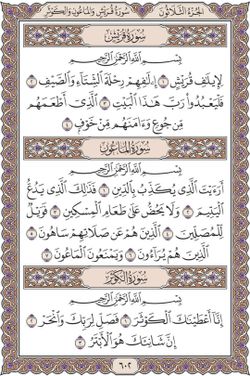 الجزء الثلاثون سورة قريش والماعون والكوثر
سورة قريش
بسم الله الرحمن الرحيم
لإيلف قريش ١ إۦلفهم رحلة الشتاء والصيف ٢
فليعبدوا رب هذا البيت ٣ الذي أطعمهم
من جوع وءامنهم من خوف ٤
سورة الماعون
بسم الله الرحمن الرحيم
أرءيت الذي يكذب بالدين ١ فذلك الذي يدع
اليتيم ٢ ولا يحض على طعام المسكين ٣ فويل
للمصلين ٤ الذين هم عن صلاتهم ساهون ٥
الذين هم يراءون ٦ ويمنعون الماعون ٧
سورة الكوثر
بسم الله الرحمن الرحيم
إنا أعطينك الكوثر ١ فصل لربك وانحر ٢
إن شانئك هو الأبتر ٣
٦٠٢